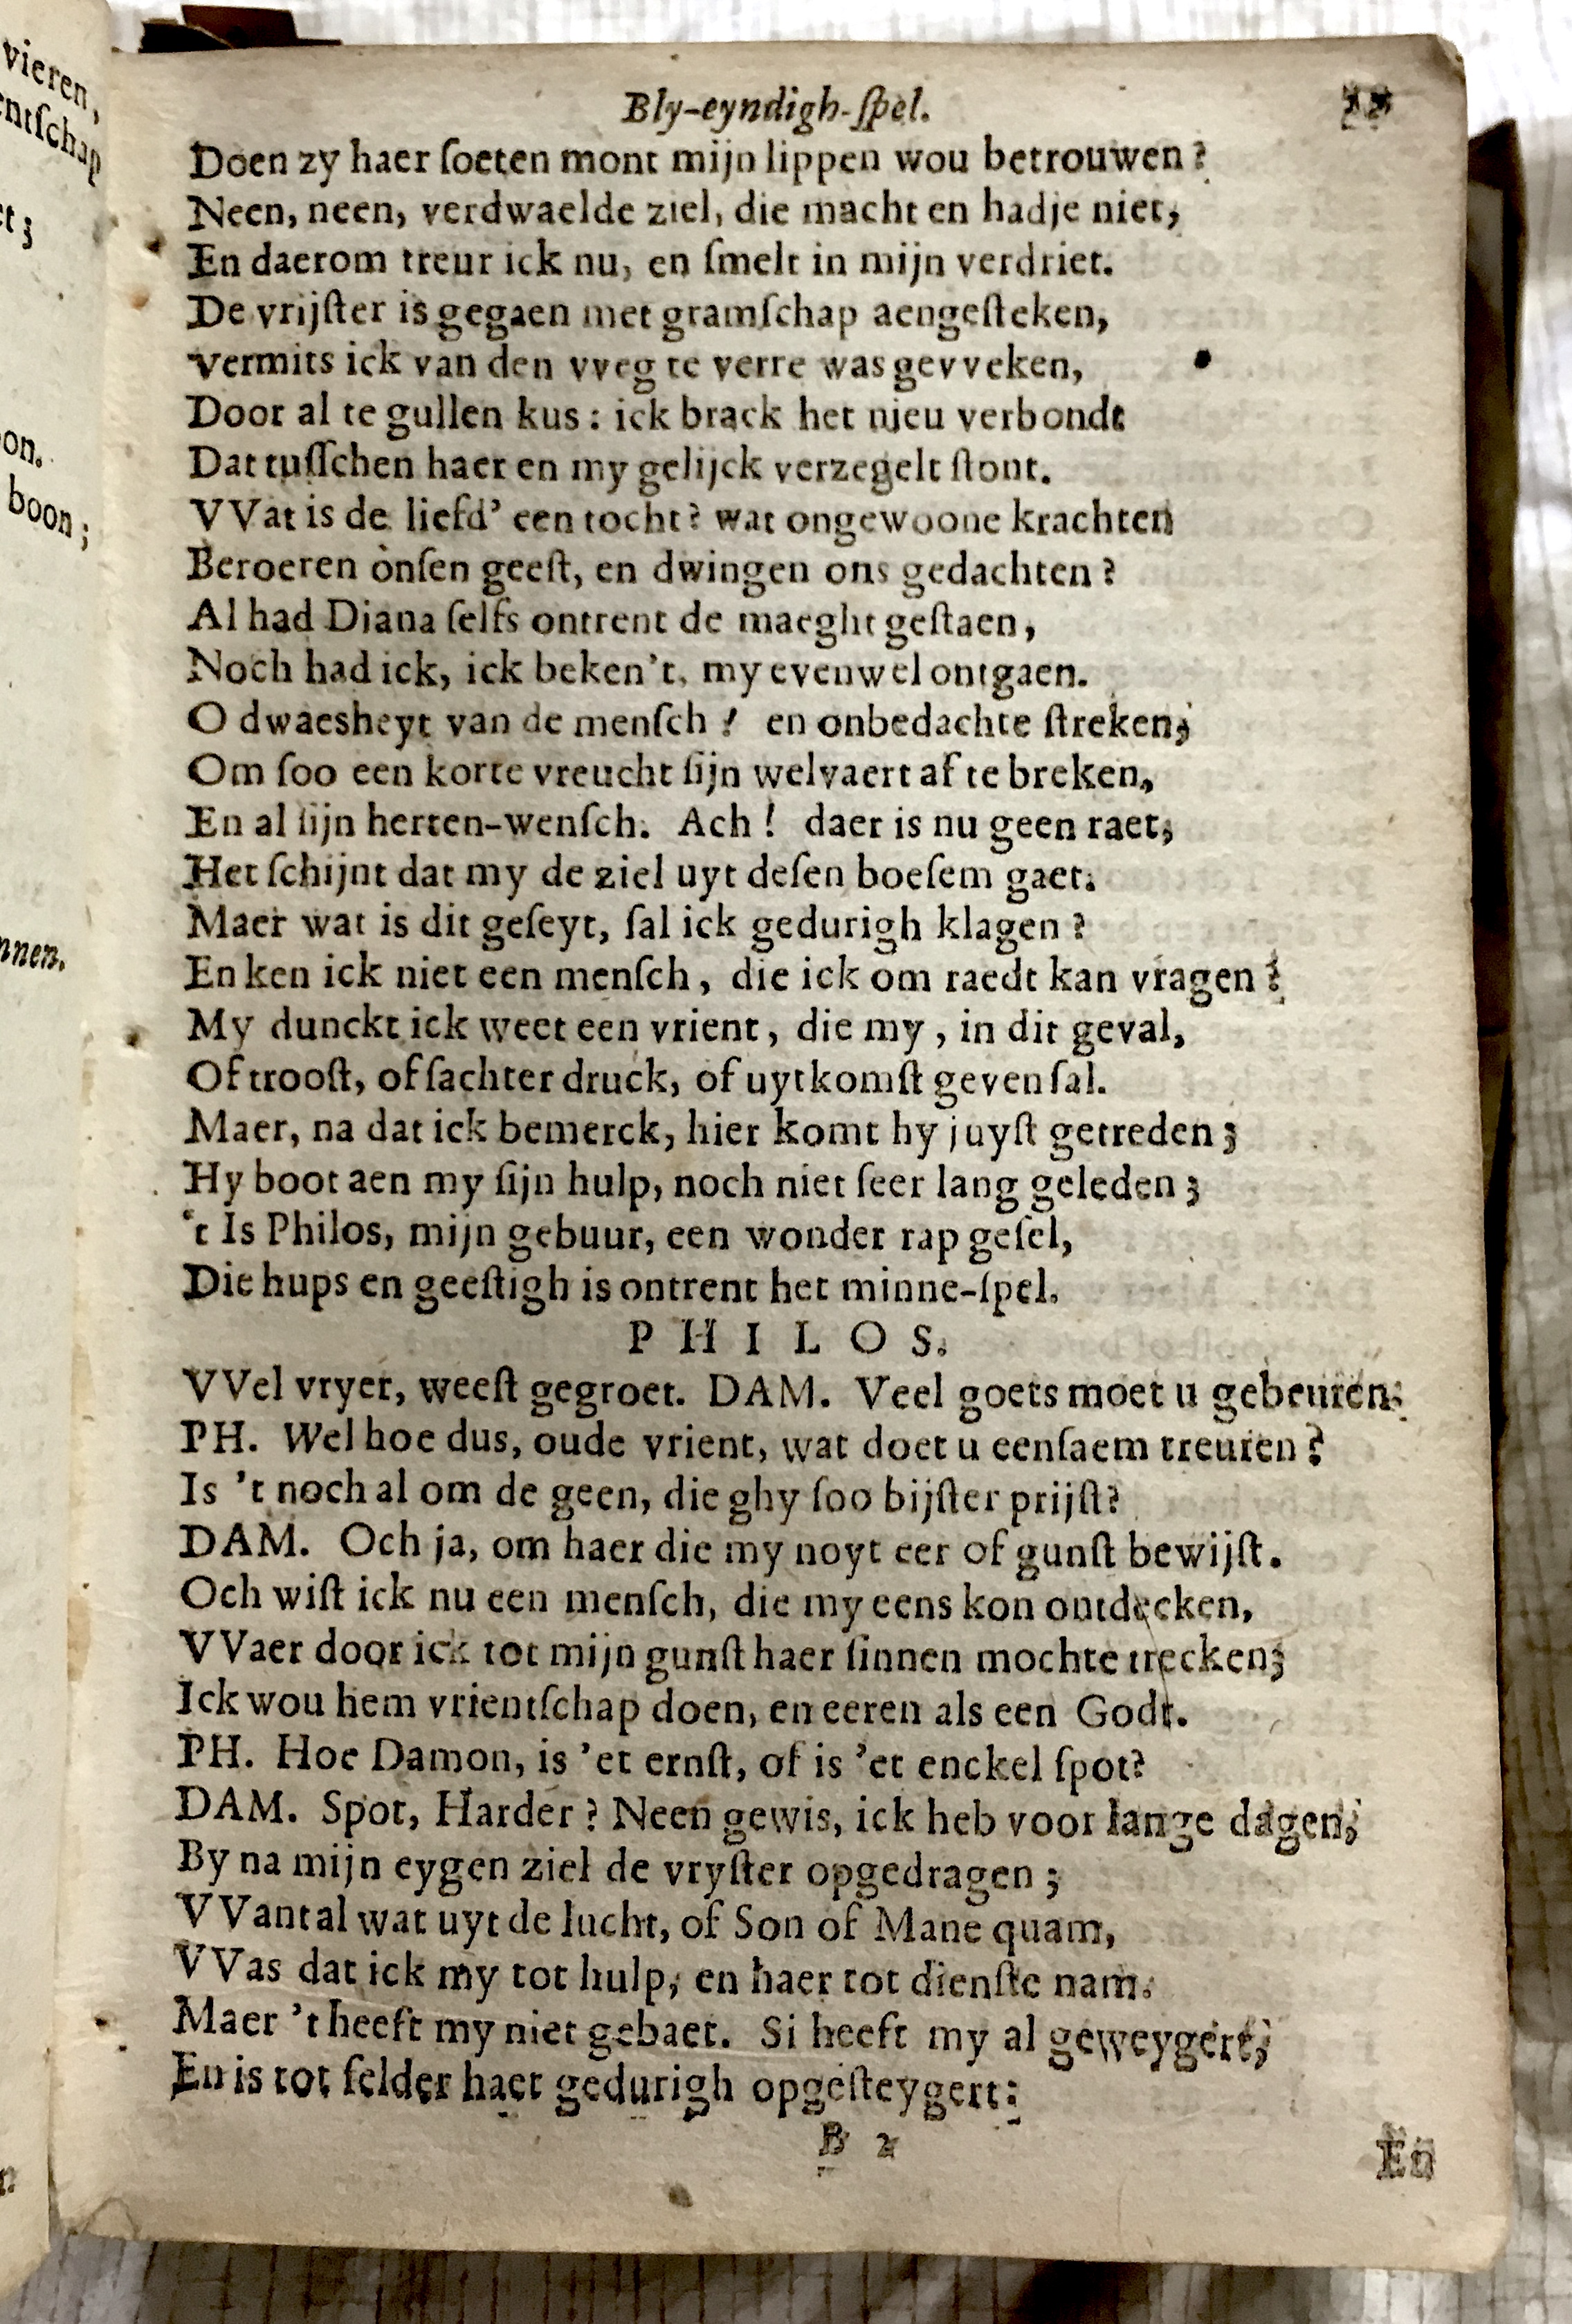 vieren,
entſchap
et;
on.
boon;
nnen.
Bly-eyndigh-ſpel.
Doen zy haer ſoeten mont mijn lippen wou betrouwen?
Neen, neen, verdwaelde ziel, die macht en hadje niet,
En daerom treur ick nu, en ſmelt in mijn verdriet.
De vrijſter is gegaen met gramſchap aengeſteken,
vermits ick van den vveg te verre was gevveken,
Door al te gullen kus: ick brack het nieu verbondt
Dat tuſſchen haer en my gelijck verzegelt ſtont.
VVat is de liefd' een tocht? wat ongewoone krachten
Beroeren onſen geeſt, en dwingen ons gedachten?
Al had Diana ſelfs ontrent de maeght geſtaen,
Noch had ick, ick beken't, my evenwel ontgaen.
O dwaesheyt van de menſch! en onbedachte ſtreken;
Om ſoo een korte vreucht ſijn welvaert af te breken,
En al ſijn herten-wenſch. Ach! daer is nu geen raet,
Het ſchijnt dat my de ziel uyt deſen boeſem gaet.
Maer wat is dit geſeyt, ſal ick gedurigh klagen?
En ken ick niet een menſch, die ick om raedt kan vragen?
My dunckt ick weet een vrient, die my, in dit geval,
Of trooſt, of ſachter druck, of uytkomſt geven ſal.
Maer, na dat ick bemerck, hier komt hy juyſt getreden;
Hy boot aen my ſijn hulp, noch niet ſeer lang geleden;
't Is Philos, mijn gebuur, een wonder rap geſel,
Die hups en geeſtigh is ontrent het minne-ſpel.
PHILOS.
VVel vryer, weeſt gegroet. DAM. Veel goets moet u gebeuren.
PH. Wel hoe dus, oude vrient, wat doet u eenſaem treuren?
Is 't noch al om de geen, die ghy ſoo bijſter prijſt?
DAM. Och ja, om haer die my noyt eer of gunſt bewijſt.
Och wiſt ick nu een menſch, die my eens kon ontdecken,
VVaer door ick tot mijn gunſt haer ſinnen mochte trecken;
Ick wou hem vrientſchap doen, en eeren als een Godt.
PH. Hoe Damon, is 'et ernſt, of is 'et enckel ſpot?
DAM. Spot, Harder? Neen gewis, ick heb voor lange dagen,
By na mijn eygen ziel de vryſter opgedragen;
VVant al wat uyt de lucht, of Son of Mane quam,
VVas dat ick my tot hulp, en haer tot dienſte nam.
Maer 't heeft my niet gebaet. Si heeft my al geweygert,
En is tot ſelder haet gedurigh opgeſteygert:
B 2
En